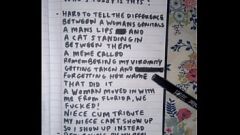 - HARD TO TELL THE DIFFERENCE
BETWEEN A WOMANS GENITALS
A MANS LIPS AND
A CAT STANDING IN
BETWEEN THEM
A MEME CALLED
REMEMBERING MY VIRGINITY
GETTING TAKEN AND
FORGETTING HER NAME
THAT DID IT
A WOMAN MOVED IN WITH
ME FROM FLORIDA, WE
FUCKED!
NIECE CUM TRIBUTE
MY NIECE CAN'T SHOW UP
SO I SHOW UP INSTEAD